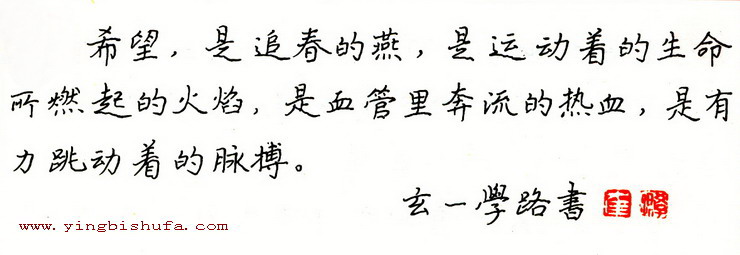 希望，是追春的燕，是运动着的生命
所燃起的火焰，是血管里奔流的热血，是有
力跳动着的脉搏。
玄一學路書
www.yingbishufa.com